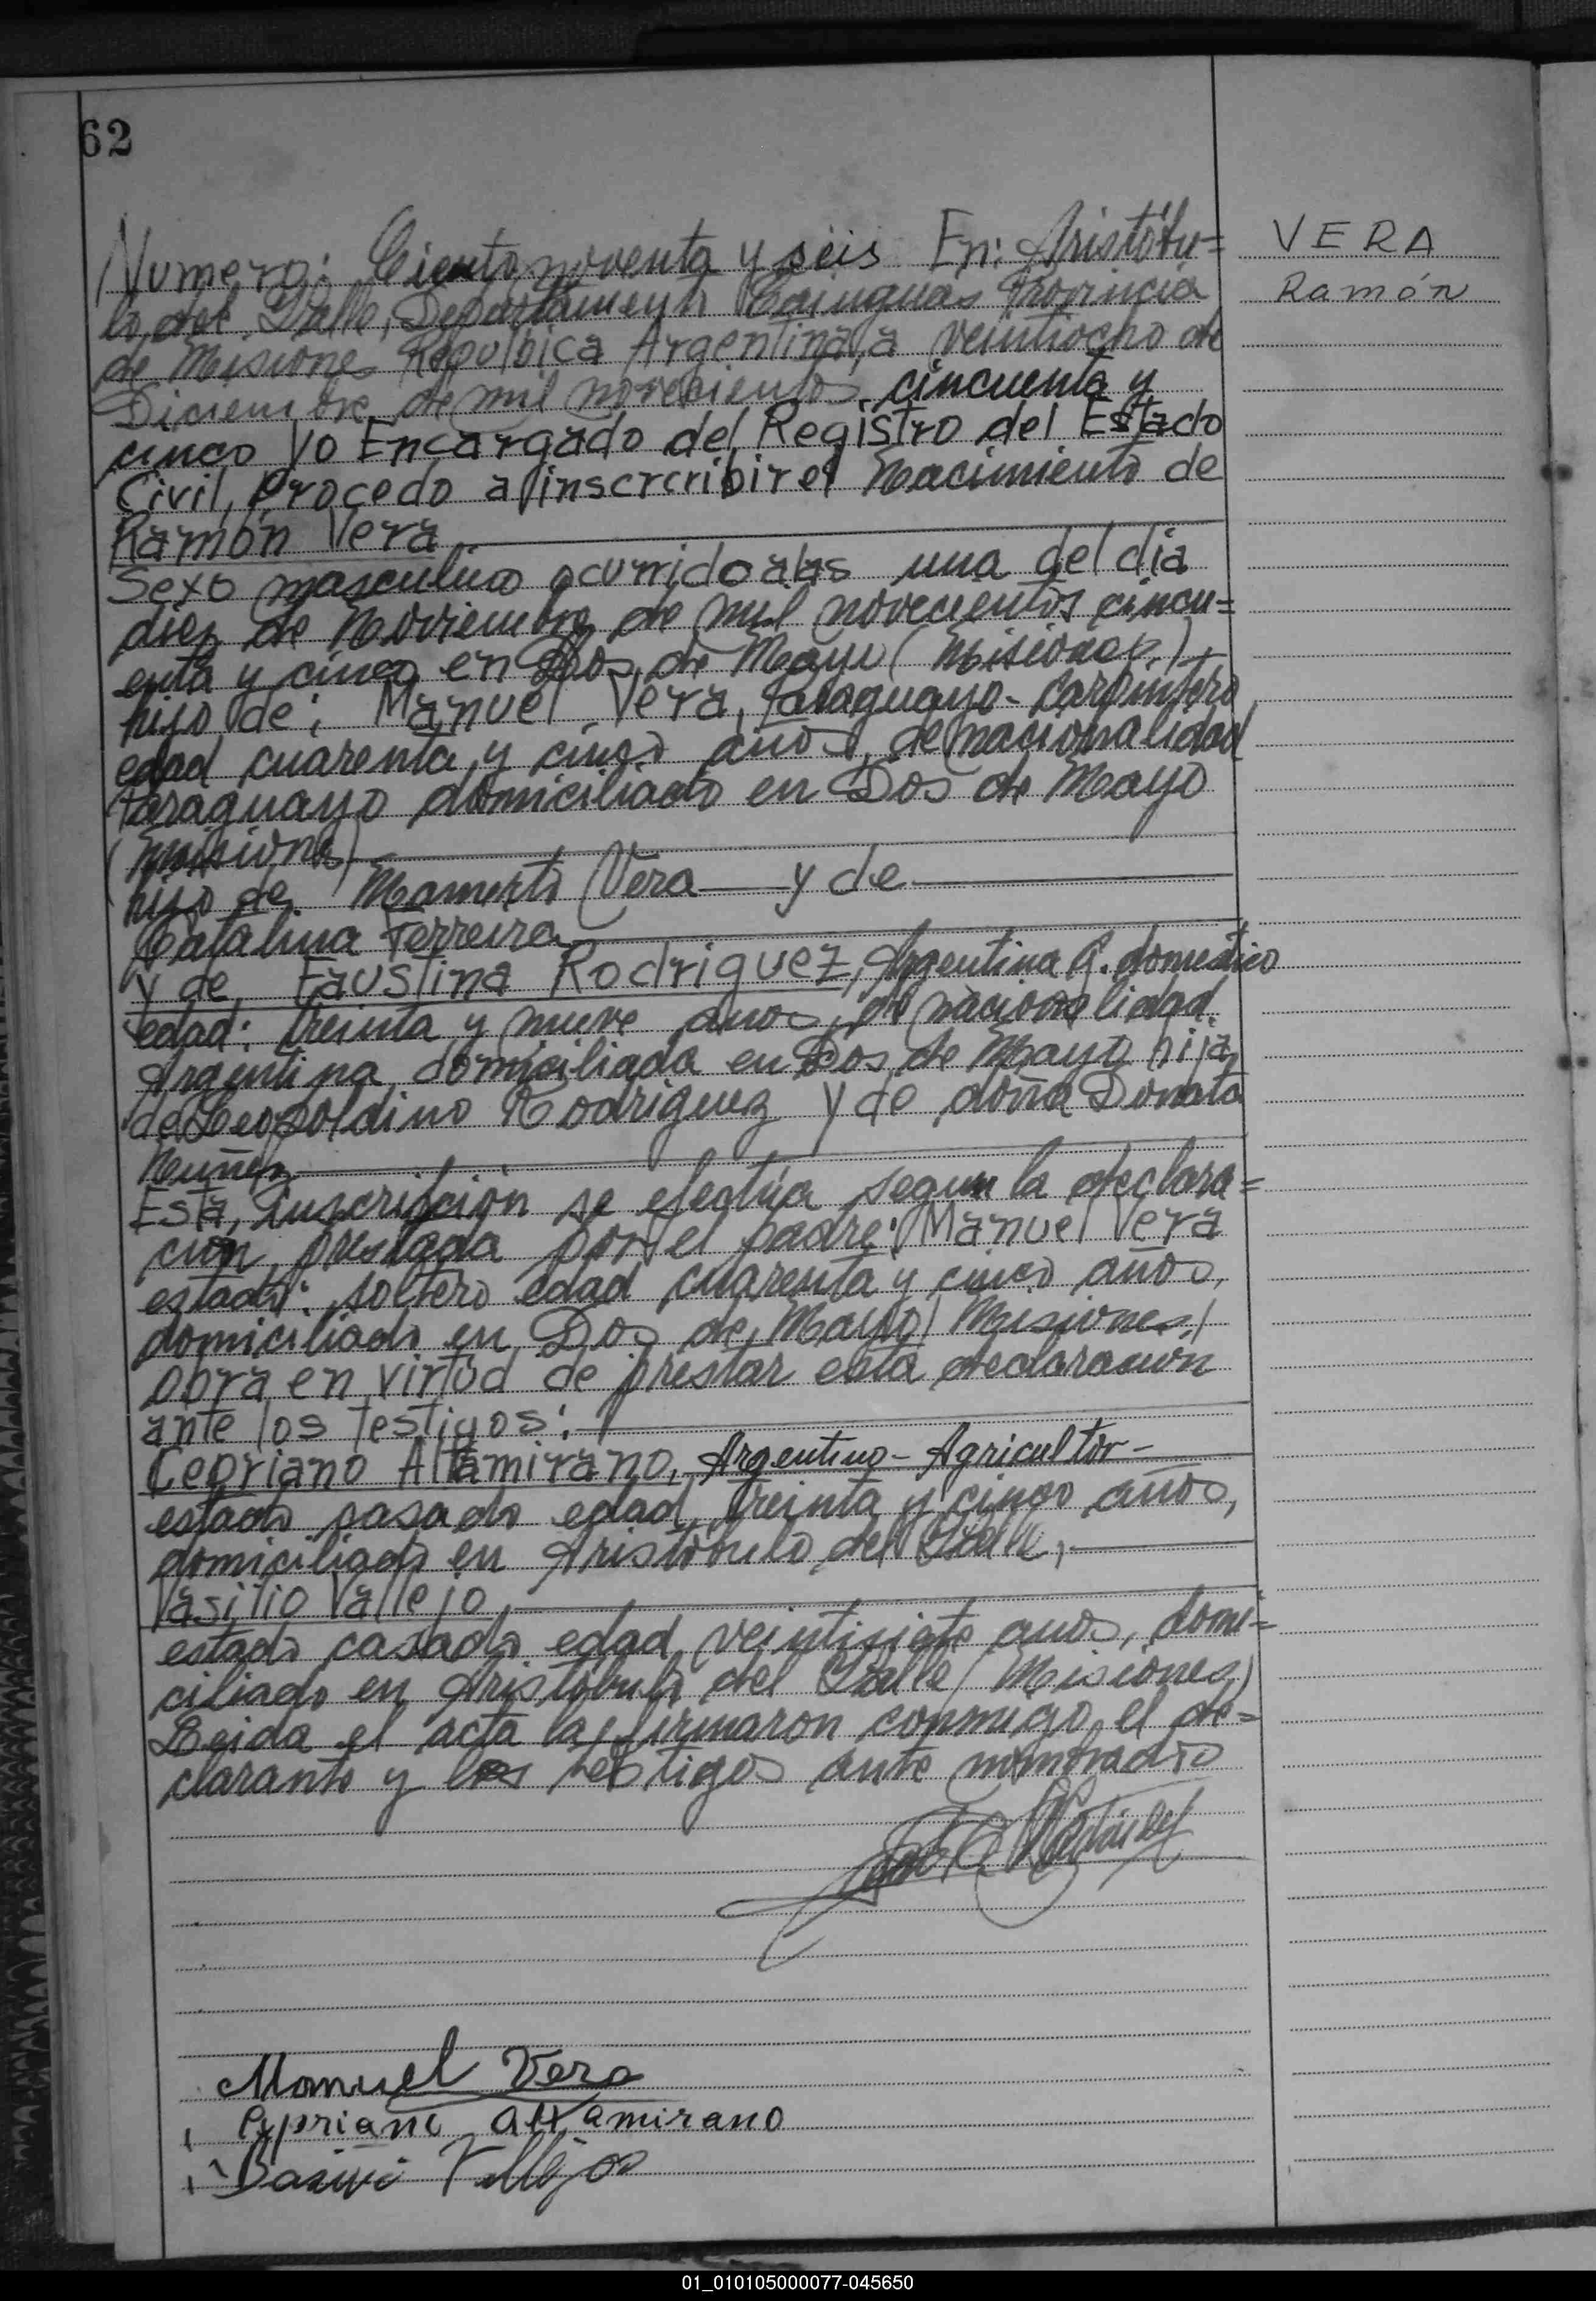 62
VERA
Ramón
Numero: Ciento noventa y seis En: Aristóbu=
lo del Valle, Departamento Cainguas Provincia
de Misiones Repulbica Argentina, a veintiocho de
Diciembre de mil novecientos cincuenta y
cinco Yo Encargado del Registro del Estado
Civil, Procedo a inscrcribir el Nacimiento de
Ramón Vera
Sexo masculino ocurrido a las una del dia
diez de Noviembre de mil novecientos cincu=
enta y cinco en Dos de Mayo (Misiones)
hijo de: Manuel Vera, Paraguayo - Carpintero
edad cuarenta y cinco años, de nacionalidad
Paraguayo domiciliado en Dos de Mayo
(Misiones)
hijo de Mamerto Vera y de
Catalina Ferreira
y de Faustina Rodriguez, Argentina Q. domestico
edad: treinta y nueve años, de nacionalidad
Argentina domiciliada en Dos de Mayo hija
de Leopoldino Rodriguez y de doña Donata
Nuñez
Esta, inscripción se efectúa segun la declara=
cion, prestada por el padre: Manuel Vera
estado: soltero edad cuarenta y cinco años,
domiciliado en Dos de Mayo (Misiones)
Obra en virtud de prestar esta declaracion
ante los testigos:
Cepriano Altamirano, Argentino - Agricultor -
estado casado edad treinta y cinco años,
domiciliado en Aristóbulo del Valle,
Vasilio Vallejo
estado casado edad veintisiete años, domi=
ciliado en Aristóbulo del Valle (Misiones)
Leida el acta la firmaron conmigo el de=
clarante y los testigos ante nombrado
Manuel Vera
Cypriano Altamirano
Vallejos
01_010105000077-045650